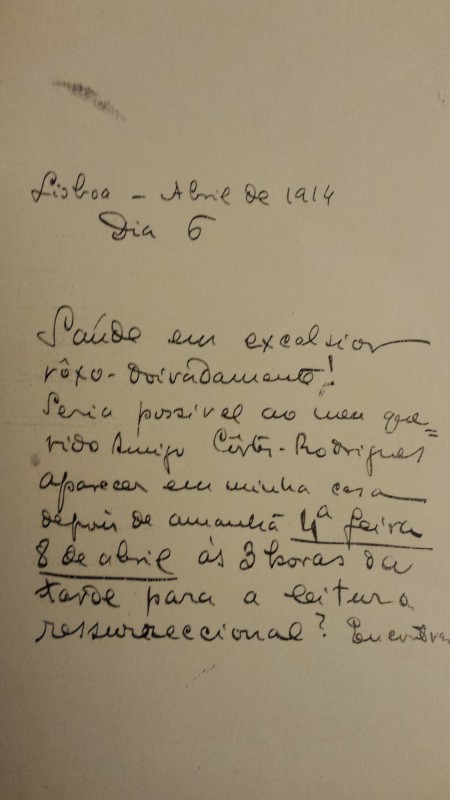 Lisboa – Abril de 1914
Dia 6
Saúde em excelsior
rôxo-doiradamente!
Seria possivel ao meu que=
rido Amigo Côrtes-Rodrigues
aparecer em minha casa
depois de amanhã 4ª feira
8 de abril ás 3 horas da
tarde para a leitura
ressurreccional? Encontrar